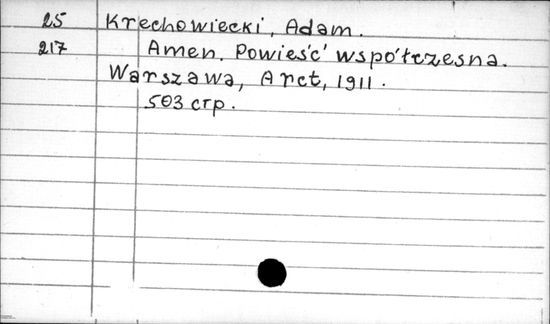 25 Krechowiecki, Adam.
217 Amen. Powieść współczesna.
Warszawa, Arct, 1911.
503 стр.